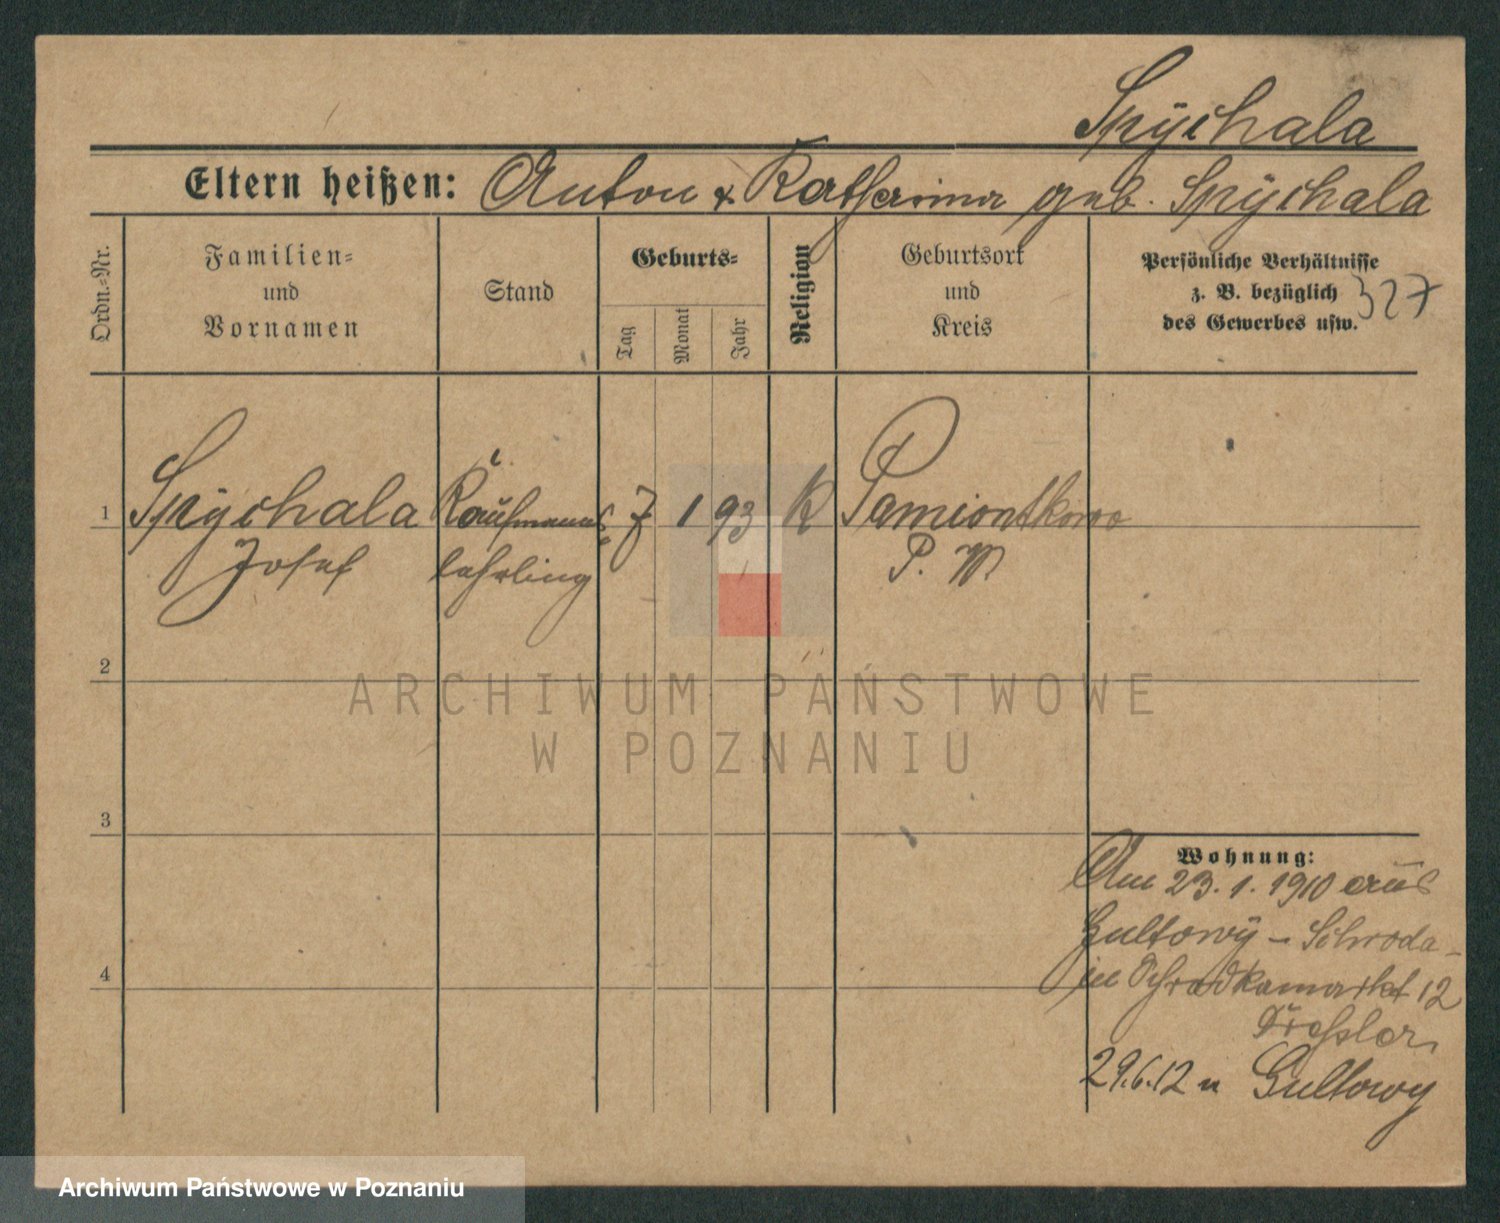 Spÿchala
Eltern heißen: Anton & Katharina geb. Spÿchala
Ordn.-Nr.
Familien-
und
Vornamen
Stand
Geburts-
Tag
Monat
Jahr
Religion
Geburtsort
und
Kreis
Persönliche Verhältnisse
z. B. bezüglich
des Gewerbes usw.
327
1 Spÿchala Kaufmanns 7 1 93 K Pamiontkowo
Josef lehrling P. W.
2
ARCHIWUM PAŃSTWOWE
W POZNANIU
3
Wohnung:
Am 23.1.1910 aus
Gultowÿ – Schroda
4
in 12
29.6.12 n Gultowy
Archiwum Państwowe w Poznaniu